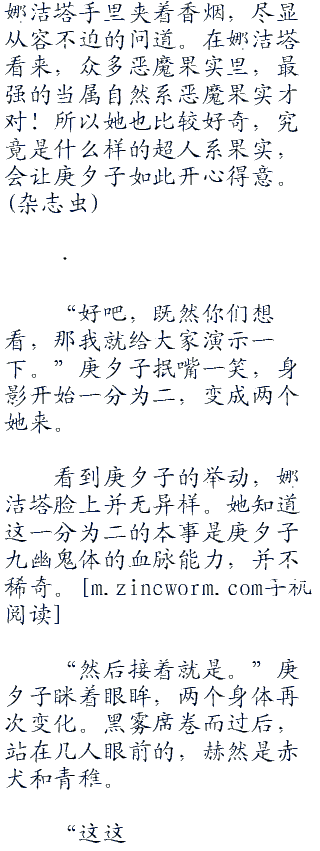 娜洁塔手里夹着香烟，尽显
从容不迫的问道。在娜洁塔
看来，众多恶魔果实里，最
强的当属自然系恶魔果实才
对！所以她也比较好奇，究
竟是什么样的超人系果实，
会让庚夕子如此开心得意。
(杂志虫)
.
“好吧，既然你们想
看，那我就给大家演示一
下。”庚夕子抿嘴一笑，身
影开始一分为二，变成两个
她来。
看到庚夕子的举动，娜
洁塔脸上并无异样。她知道
这一分为二的本事是庚夕子
九幽鬼体的血脉能力，并不
稀奇。[m.zincworm.com手机
阅读]
“然后接着就是。”庚
夕子眯着眼眸，两个身体再
次变化。黑雾席卷而过后，
站在几人眼前的，赫然是赤
犬和青稚。
“这这